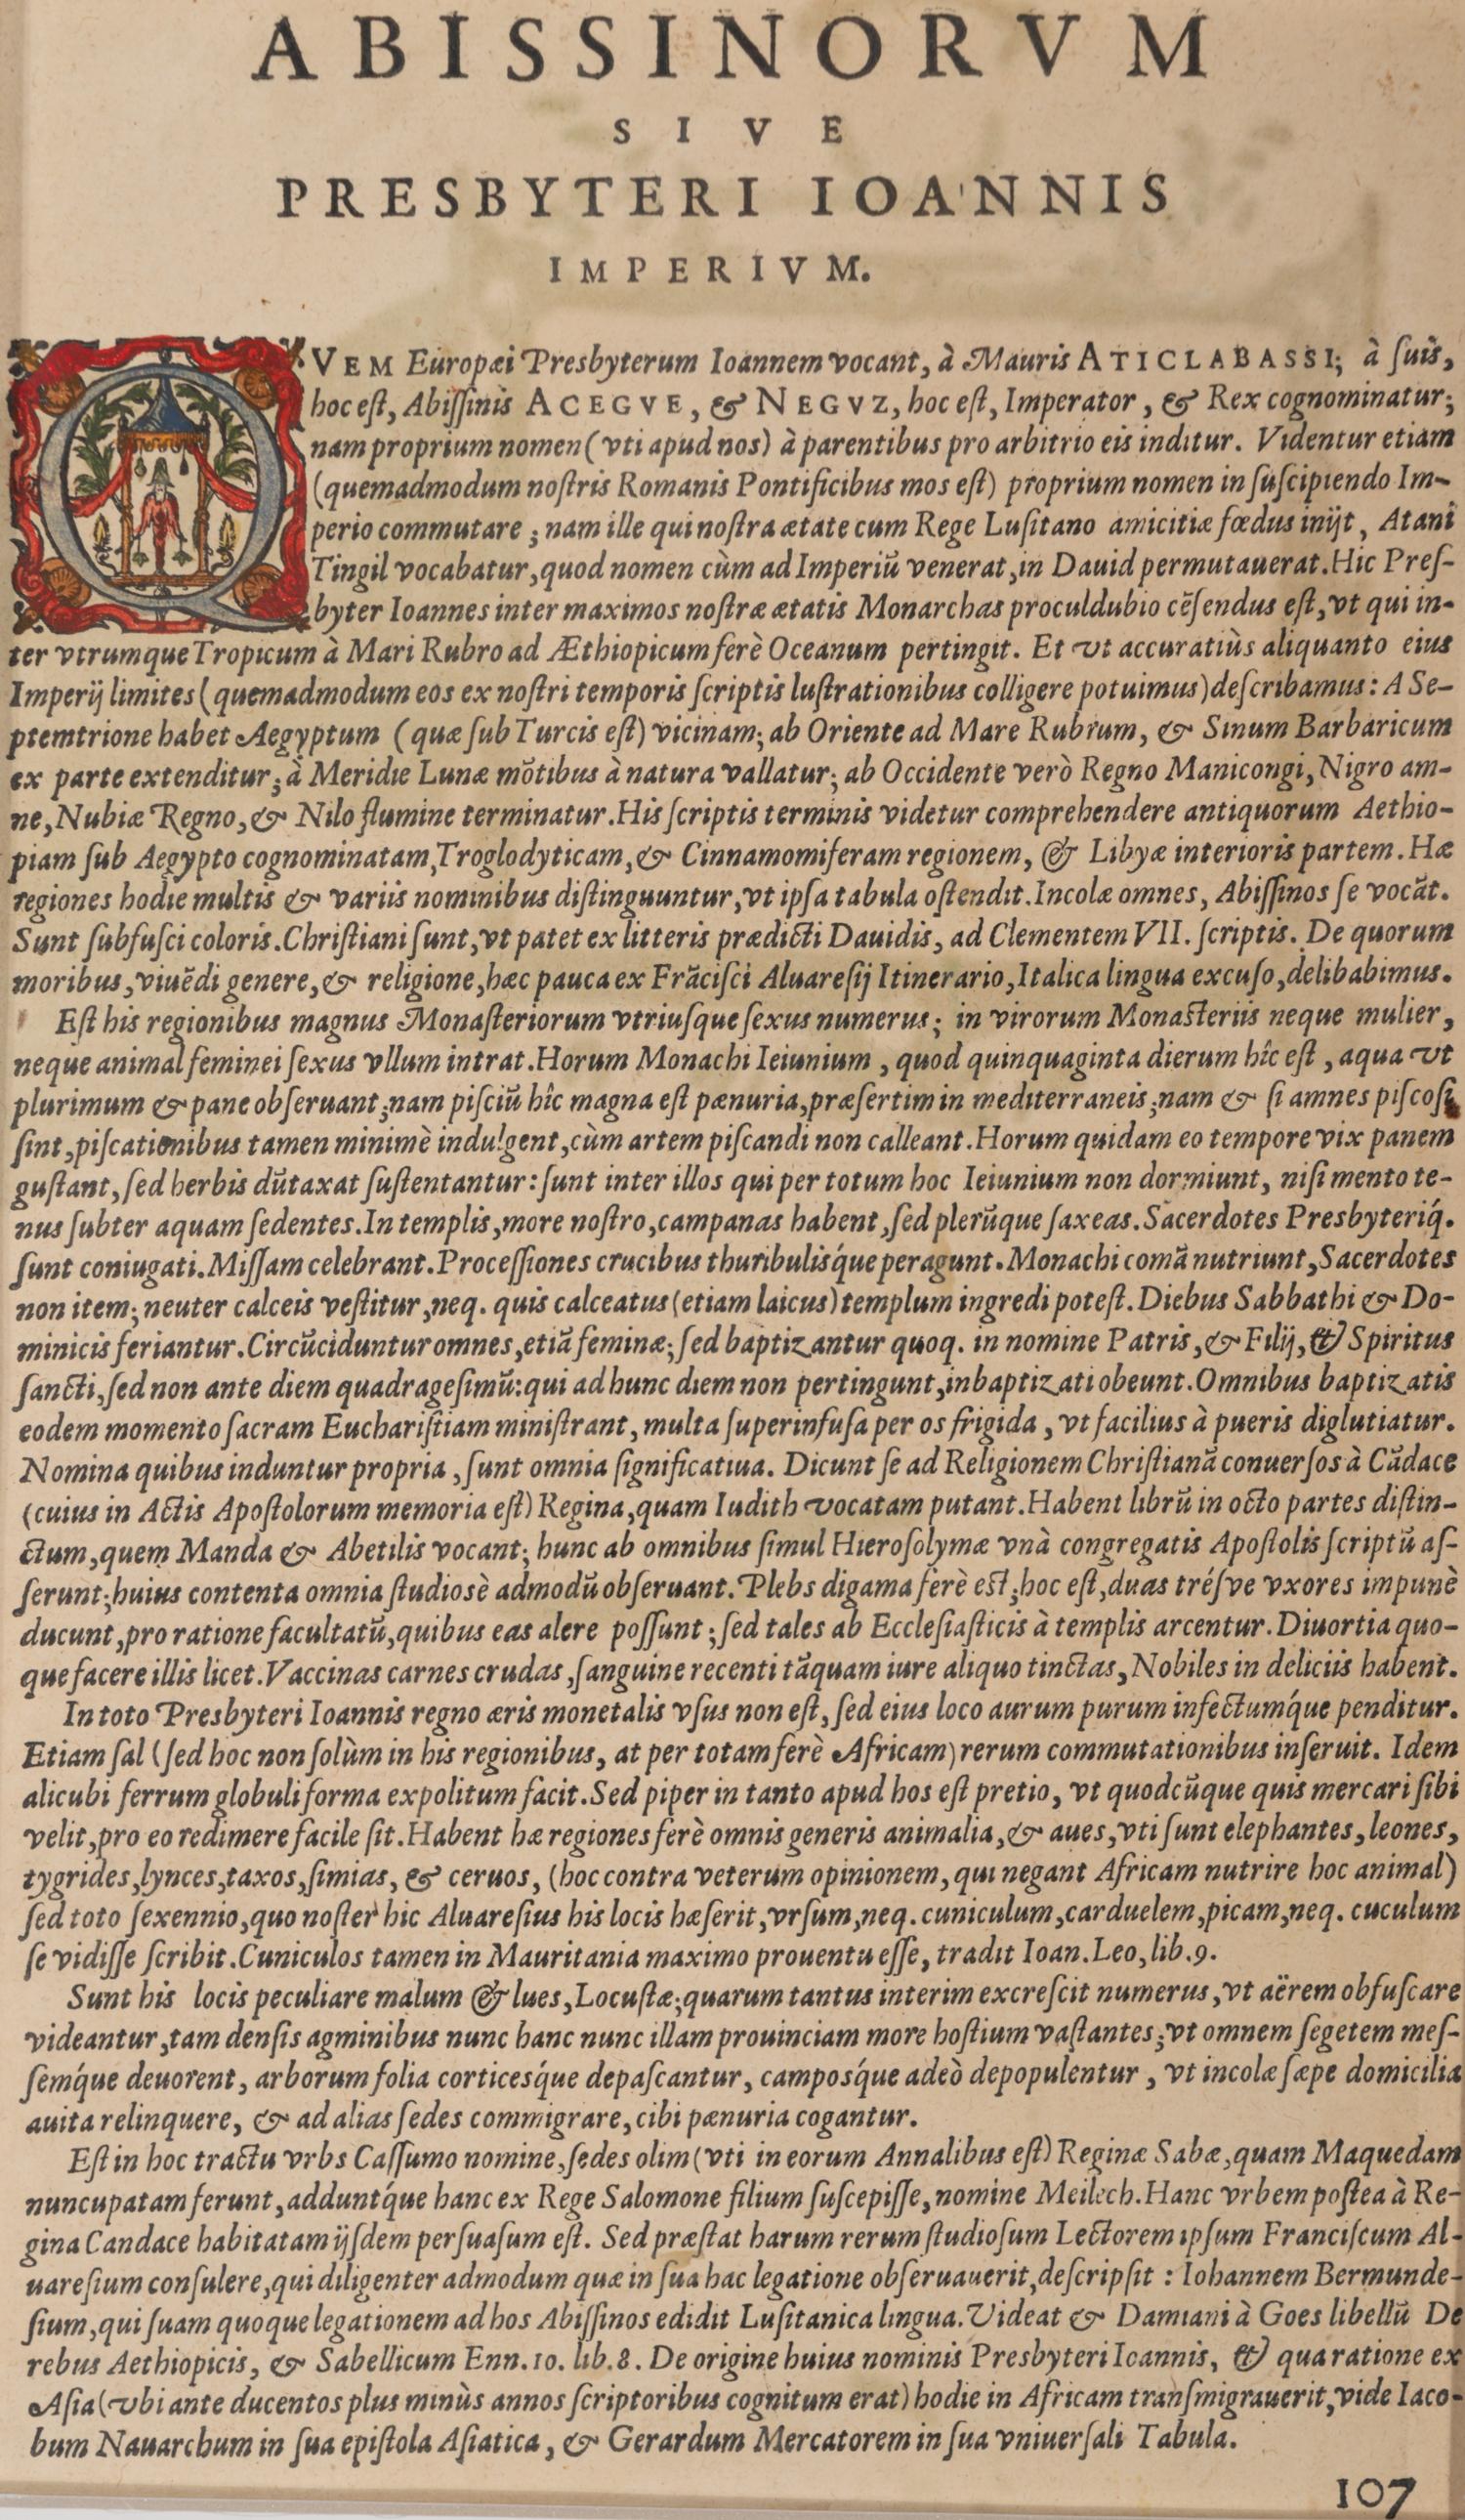 ABISSINORVM
SIVE
PRESBYTERI IOANNIS
IMPERIVM.
QVEM Europæi Presbyterum Ioannem vocant, à Mauris ATICLABASSI; à ſuis,
hoc eſt, Abiſſinis ACEGVE, & NEGVZ, hoc eſt, Imperator, & Rex cognominatur;
nam proprium nomen (vti apud nos) à parentibus pro arbitrio eis inditur. Videntur etiam
(quemadmodum noſtris Romanis Pontificibus mos eſt) proprium nomen in ſuſcipiendo Im-
perio commutare; nam ille qui noſtra ætate cum Rege Luſitano amicitiæ fœdus inijt, Atani
Tingil vocabatur, quod nomen cùm ad Imperiũ venerat, in Dauid permutauerat. Hic Preſ-
byter Ioannes inter maximos noſtræ ætatis Monarchas proculdubio cẽſendus eſt, vt qui in-
ter vtrumque Tropicum à Mari Rubro ad Æthiopicum ferè Oceanum pertingit. Et vt accuratiùs aliquanto eius
Imperij limites (quemadmodum eos ex noſtri temporis ſcriptis luſtrationibus colligere potuimus) deſcribamus: A Se-
ptemtrione habet Aegyptum (quæ ſub Turcis eſt) vicinam; ab Oriente ad Mare Rubrum, & Sinum Barbaricum
ex parte extenditur; à Meridie Lunæ mõtibus à natura vallatur; ab Occidente verò Regno Manicongi, Nigro am-
ne, Nubiæ Regno, & Nilo flumine terminatur. His ſcriptis terminis videtur comprehendere antiquorum Aethio-
piam ſub Aegypto cognominatam, Troglodyticam, & Cinnamomiferam regionem, & Libyæ interioris partem. Hæ
regiones hodie multis & variis nominibus diſtinguuntur, vt ipſa tabula oſtendit. Incolæ omnes, Abiſſinos ſe vocãt.
Sunt ſubfuſci coloris. Chriſtiani ſunt, vt patet ex litteris prædicti Dauidis, ad Clementem VII. ſcriptis. De quorum
moribus, viuẽdi genere, & religione, hæc pauca ex Frãciſci Aluareſij Itinerario, Italica lingua excuſo, delibabimus.
Eſt his regionibus magnus Monaſteriorum vtriuſque ſexus numerus; in virorum Monaſteriis neque mulier,
neque animal feminei ſexus vllum intrat. Horum Monachi Ieiunium, quod quinquaginta dierum hîc eſt, aqua vt
plurimum & pane obſeruant; nam piſciũ hîc magna eſt pænuria, præſertim in mediterraneis; nam & ſi amnes piſcoſi
ſint, piſcationibus tamen minimè indulgent, cùm artem piſcandi non calleant. Horum quidam eo tempore vix panem
guſtant, ſed herbis dũtaxat ſuſtentantur: ſunt inter illos qui per totum hoc Ieiunium non dormiunt, niſi mento te-
nus ſubter aquam ſedentes. In templis, more noſtro, campanas habent, ſed plerũque ſaxeas. Sacerdotes Presbyteriq́.
ſunt coniugati. Miſſam celebrant. Proceſſiones crucibus thuribulisq́ue peragunt. Monachi comã nutriunt, Sacerdotes
non item; neuter calceis veſtitur, neq. quis calceatus (etiam laicus) templum ingredi poteſt. Diebus Sabbathi & Do-
minicis feriantur. Circũciduntur omnes, etiã feminæ; ſed baptizantur quoq. in nomine Patris, & Filij, & Spiritus
ſancti, ſed non ante diem quadrageſimũ: qui ad hunc diem non pertingunt, inbaptizati obeunt. Omnibus baptizatis
eodem momento ſacram Euchariſtiam miniſtrant, multa ſuperinfuſa per os frigida, vt facilius à pueris diglutiatur.
Nomina quibus induntur propria, ſunt omnia ſignificatiua. Dicunt ſe ad Religionem Chriſtianã conuerſos à Cãdace
(cuius in Actis Apoſtolorum memoria eſt) Regina, quam Iudith vocatam putant. Habent librũ in octo partes diſtin-
ctum, quem Manda & Abetilis vocant; hunc ab omnibus ſimul Hieroſolymæ vnà congregatis Apoſtolis ſcriptũ aſ-
ſerunt; huius contenta omnia ſtudiosè admodũ obſeruant. Plebs digama ferè eſt; hoc eſt, duas tréſve vxores impunè
ducunt, pro ratione facultatũ, quibus eas alere poſſunt; ſed tales ab Eccleſiaſticis à templis arcentur. Diuortia quo-
que facere illis licet. Vaccinas carnes crudas, ſanguine recenti tãquam iure aliquo tinctas, Nobiles in deliciis habent.
In toto Presbyteri Ioannis regno æris monetalis vſus non eſt, ſed eius loco aurum purum infectumq́ue penditur.
Etiam ſal (ſed hoc non ſolùm in his regionibus, at per totam ferè Africam) rerum commutationibus inſeruit. Idem
alicubi ferrum globuli forma expolitum facit. Sed piper in tanto apud hos eſt pretio, vt quodcũque quis mercari ſibi
velit, pro eo redimere facile ſit. Habent hæ regiones ferè omnis generis animalia, & aues, vti ſunt elephantes, leones,
tygrides, lynces, taxos, ſimias, & ceruos, (hoc contra veterum opinionem, qui negant Africam nutrire hoc animal)
ſed toto ſexennio, quo noſter hic Aluareſius his locis hæſerit, vrſum, neq. cuniculum, carduelem, picam, neq. cuculum
ſe vidiſſe ſcribit. Cuniculos tamen in Mauritania maximo prouentu eſſe, tradit Ioan. Leo, lib. 9.
Sunt his locis peculiare malum & lues, Locuſtæ; quarum tantus interim excreſcit numerus, vt aërem obfuſcare
videantur, tam denſis agminibus nunc hanc nunc illam prouinciam more hoſtium vaſtantes; vt omnem ſegetem meſ-
ſemq́ue deuorent, arborum folia corticesq́ue depaſcantur, camposq́ue adeò depopulentur, vt incolæ ſæpe domicilia
auita relinquere, & ad alias ſedes commigrare, cibi pænuria cogantur.
Eſt in hoc tractu vrbs Caſſumo nomine, ſedes olim (vti in eorum Annalibus eſt) Reginæ Sabæ, quam Maquedam
nuncupatam ferunt, adduntq́ue hanc ex Rege Salomone filium ſuſcepiſſe, nomine Meilech. Hanc vrbem poſtea à Re-
gina Candace habitatam ijſdem perſuaſum eſt. Sed præſtat harum rerum ſtudioſum Lectorem ipſum Franciſcum Al-
uareſium conſulere, qui diligenter admodum quæ in ſua hac legatione obſeruauerit, deſcripſit: Iohannem Bermunde-
ſium, qui ſuam quoque legationem ad hos Abiſſinos edidit Luſitanica lingua. Videat & Damiani à Goes libellũ De
rebus Aethiopicis, & Sabellicum Enn. 10. lib. 8. De origine huius nominis Presbyteri Ioannis, & qua ratione ex
Aſia (vbi ante ducentos plus minùs annos ſcriptoribus cognitum erat) hodie in Africam tranſmigrauerit, vide Iaco-
bum Nauarchum in ſua epiſtola Aſiatica, & Gerardum Mercatorem in ſua vniuerſali Tabula.
107